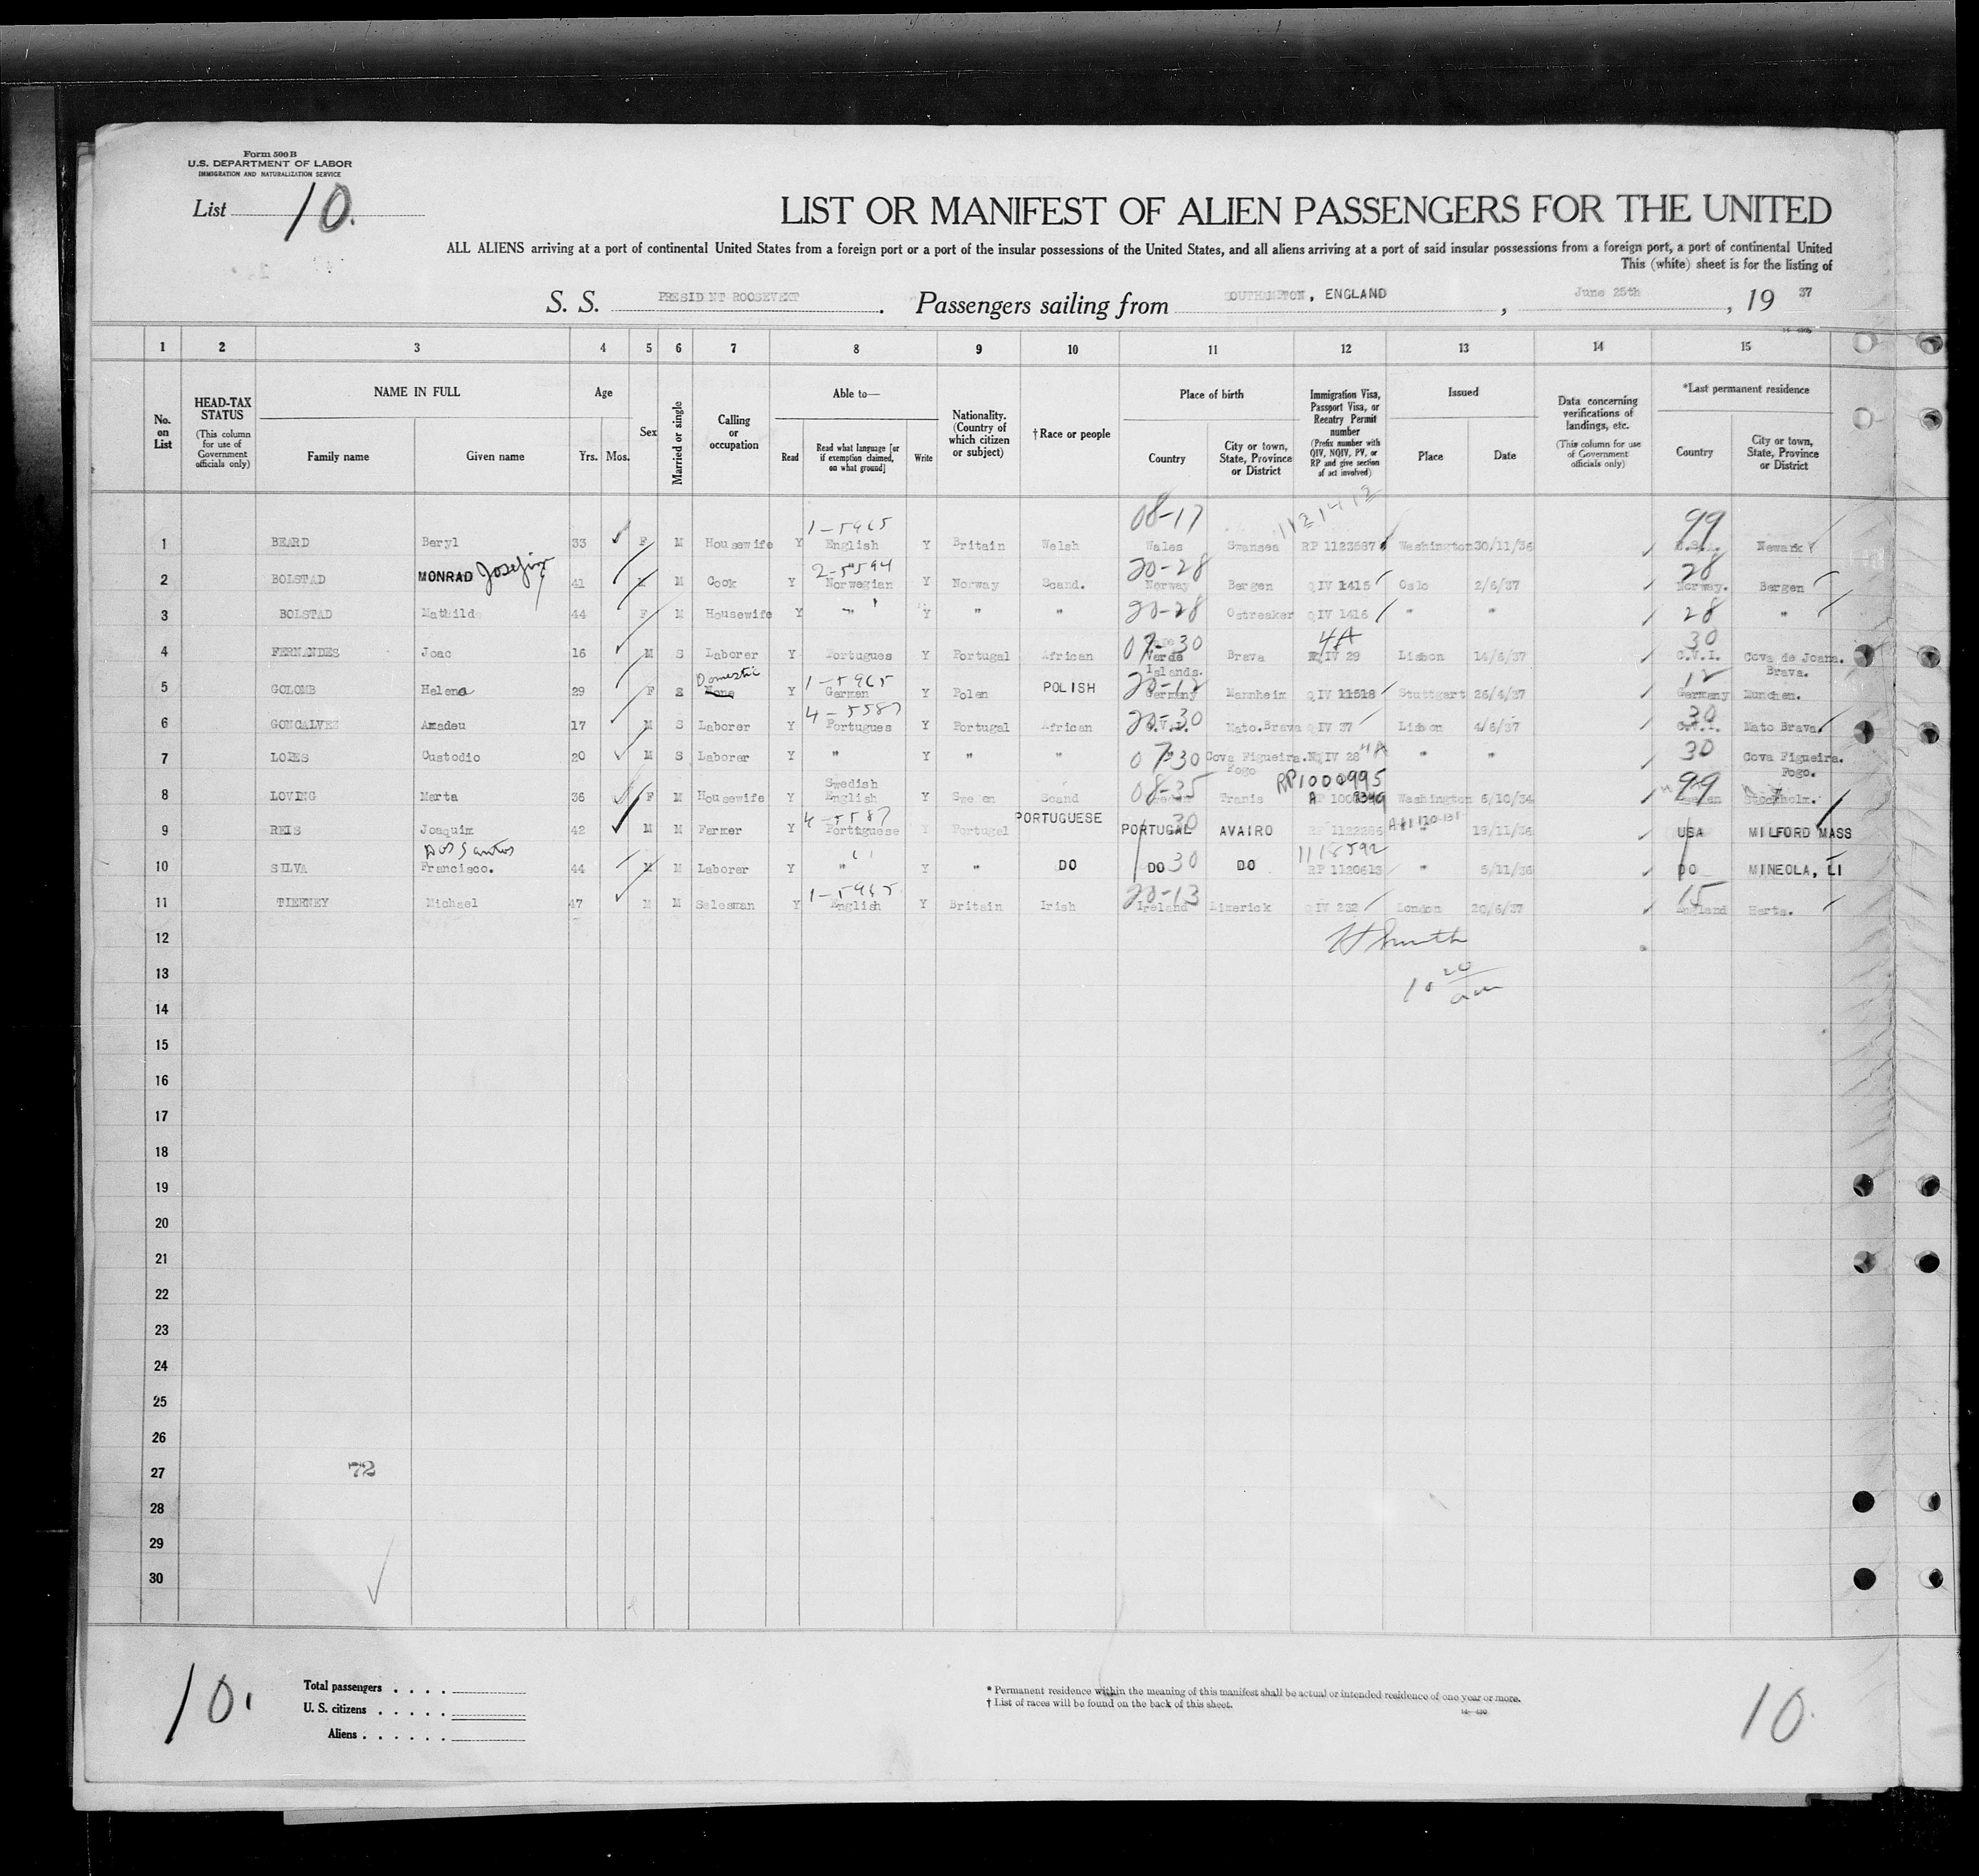 Form 500B
U.S. DEPARTMENT OF LABOR
IMMIGRATION AND NATURALIZATION SERVICE
List 10.
LIST OR MANIFEST OF ALIEN PASSENGERS FOR THE UNITED
ALL ALIENS arriving at a port of continental United States from a foreign port or a port of the insular possessions of the United States, and all aliens arriving at a port of said insular possessions from a foreign port, a port of continental United
This (white) sheet is for the listing of
S. S. PRESID NT ROOSEVEKT . Passengers sailing from SOUTHAMPTON, ENGLAND , June 25th , 19 37
1 2 3 4 5 6 7 8 9 10 11 12 13 14 15
No. on List
HEAD-TAX STATUS (This column for use of Government officials only)
NAME IN FULL
Family name Given name
Age
Yrs. Mos.
Sex
Married or single
Calling or occupation
Able to—
Read Read what language [or if exemption claimed, on what ground] Write
Nationality. (Country of which citizen or subject)
†Race or people
Place of birth
Country City or town, State, Province or District
Immigration Visa, Passport Visa, or Reentry Permit number (Prefix number with QIV, NQIV, PV, or RP and give section of act involved)
Issued
Place Date
Data concerning verifications of landings, etc. (This column for use of Government officials only)
*Last permanent residence
Country City or town, State, Province or District
1-5965 08-17 1121412 99
1 BEARD Beryl 33 F M Housewife Y English Y Britain Welsh Wales Swansea RP 1123567 Washington 30/11/36 Newark
2-5594 20-28 28
2 BOLSTAD MONRAD 41 M Cook Y Norwegian Y Norway Scand. Norway Bergen QIV 1415 Oslo 2/6/37 Norway. Bergen
3 BOLSTAD Mathilde 44 F M Housewife Y " Y " " 20-28 Ostreaker QIV 1416 " " 28 "
4A 30
4 FERNANDES Joao 16 M S Laborer Y Portugues Y Portugal African Verde Islands. Brava IV 29 Lisbon 14/6/37 C.V.I. Cova de Joana. Brava.
Domestic 1-5965 20-12 12
5 GOLOMB Helena 29 F S None Y German Y Polen POLISH Germany Mannheim QIV 11518 Stuttgart 26/4/37 Germany Munchen.
4-5587 20-30 30
6 GONCALVES Amadeu 17 M S Laborer Y Portugues Y Portugal African C.V.I. Mato.Brava QIV 37 Lisbon 4/6/37 C.V.I. Mato Brava.
7 LOPES Custodio 20 M S Laborer Y " Y " " 07-30 Cova Figueira. Fogo NQIV 28 4A " " 30 Cova Figueira. Fogo.
Swedish 08-35 RP1000995 99
8 LOVING Marta 36 F M Housewife Y English Y Sweden Scand Tranis Washington 5/10/34 Stockholm.
4-5587 30
9 REIS Joaquim 42 M M Farmer Y Portuguese Y Portugal PORTUGUESE PORTUGAL AVAIRO " 19/11/36 USA MILFORD MASS
dos Santos
10 SILVA Francisco. 44 M M Laborer Y " Y " DO DO 30 DO RP 1120613 " 5/11/36 DO MINEOLA, LI
1-5965 20-13 15
11 TIERNEY Michael 47 M M Salesman Y English Y Britain Irish Ireland Limerick QIV 232 London 20/6/37 England Herts.
12
13
10 20 am
14
15
16
17
18
19
20
21
22
23
24
25
26
27 72
28
29
30
10.
Total passengers . . . .
U. S. citizens . . . . .
Aliens . . . . . .
* Permanent residence within the meaning of this manifest shall be actual or intended residence of one year or more.
† List of races will be found on the back of this sheet.
10.